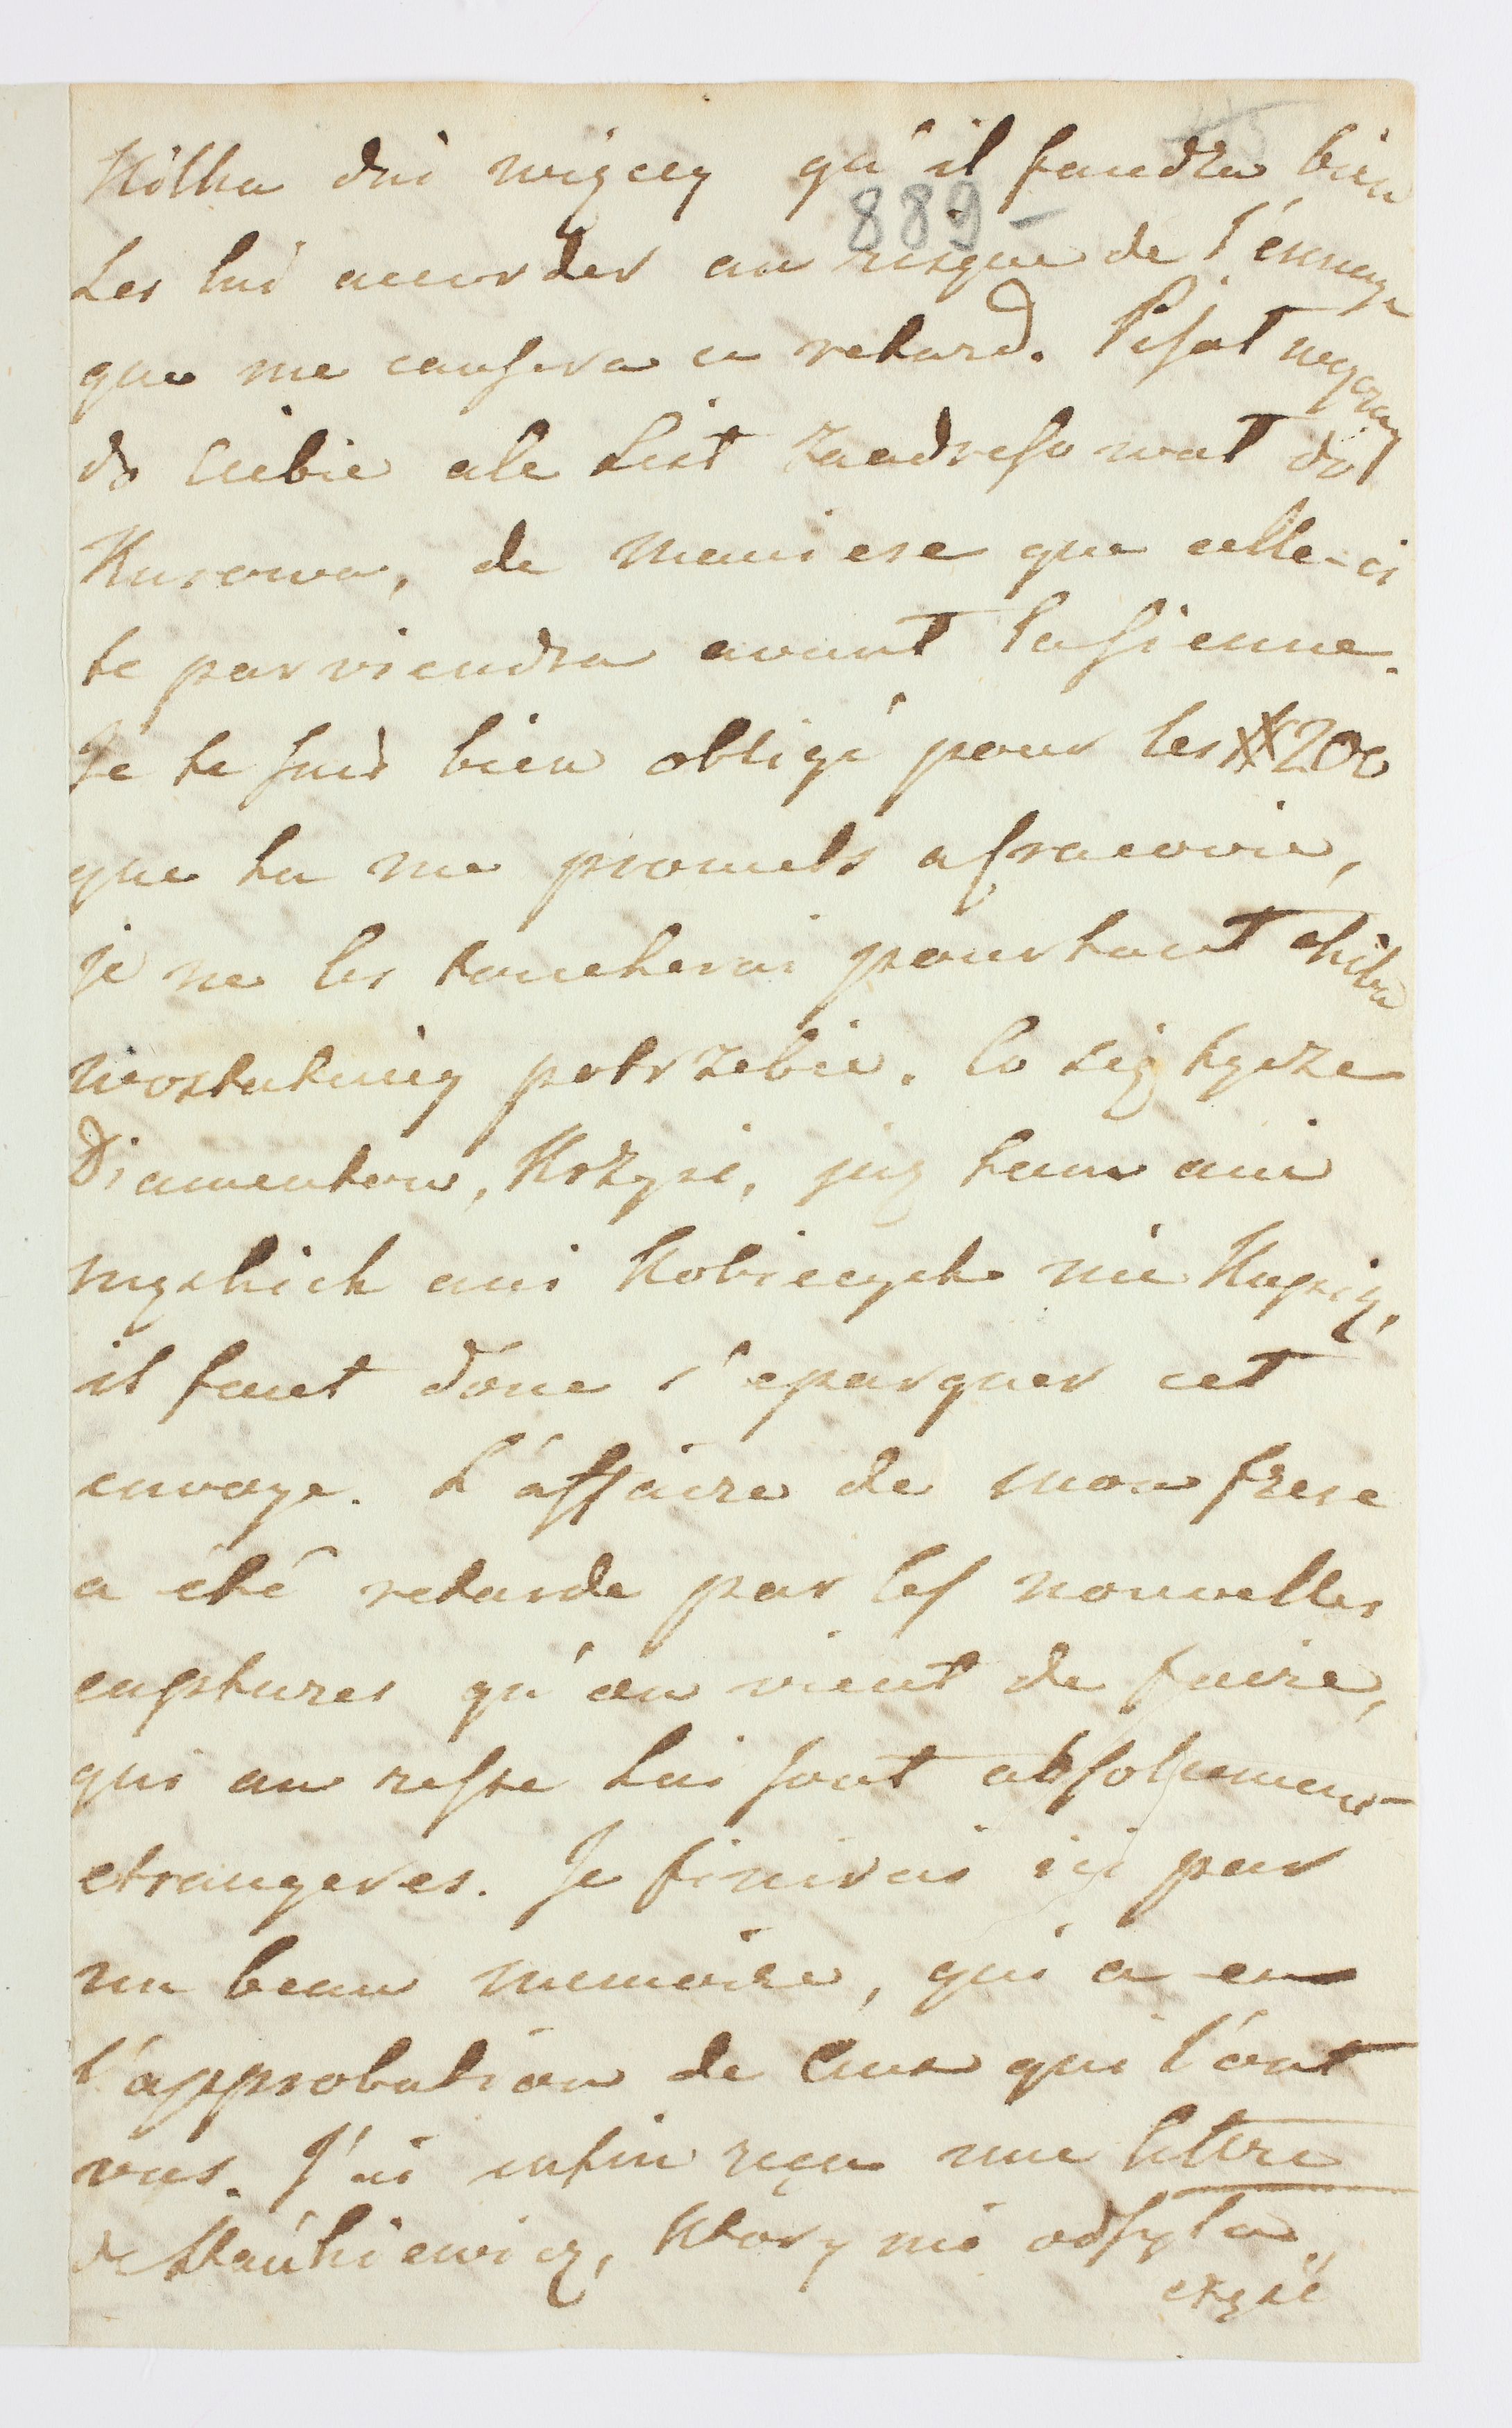 Kilka dni więcey qu'il faudra bien
889 -
les lui accorder au risque de l'ennuye
que me causera ce retard. Pisał wczoray
do Ciebie ale list zaadresował do
Kurowa, de maniere que celle-ci
te parviendra avant la sienne.
Je te suis bien obligé pour les # 200
que tu me promets a Cracovie,
je ne les toucherai pourtant chiba
w ostatniey potrzebie. Co się tycze
Diamentow, Krzysi, już tam ani
męskich ani kobiecych nie kupią,
il faut donc s'eparguer cet
envoye. L'affaire de mon frere
a été retarde par les nouvelles
captures qu'on vient de faire,
qui au reste lui sont absolument
etrangeres. Je finirai ici par
un beau memoire, qui a eu
l'approbation de Ceux qui l'ont
vus. J'ai enfin reçu une lettre
de Stańkiewicz, ktory mi odsyła
część